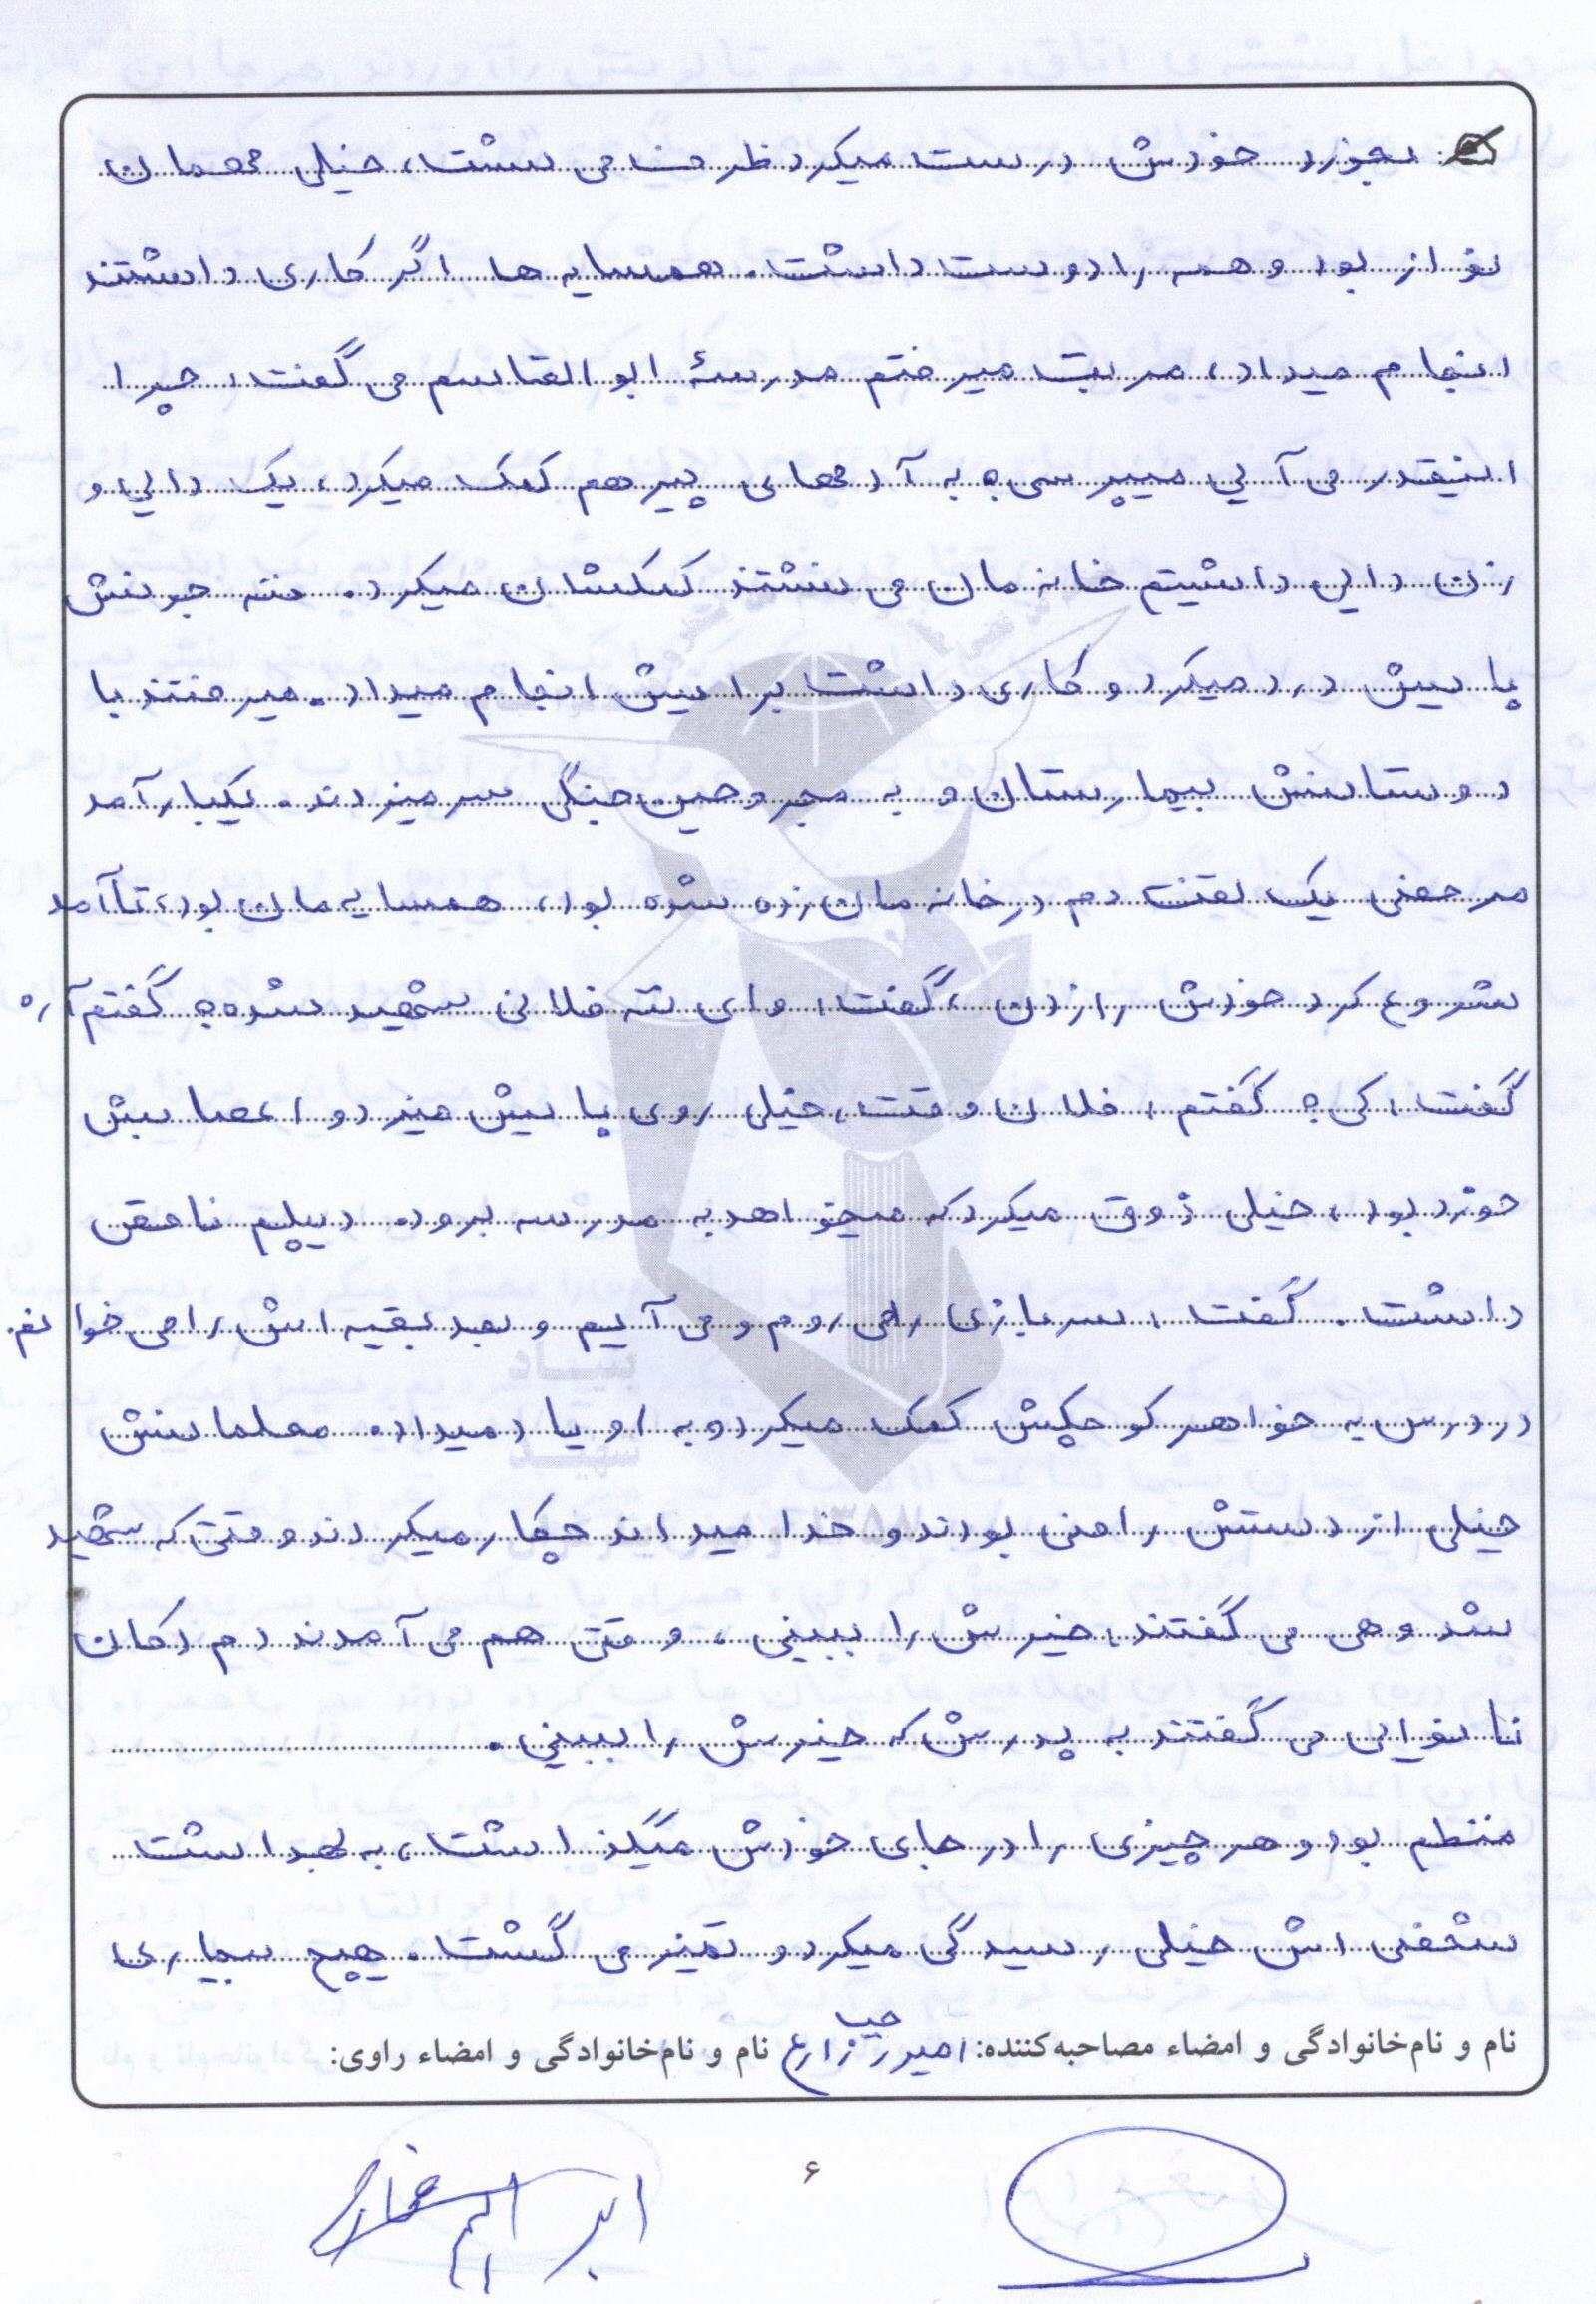 بخورد خودش درست میکرد ظرف می شست، خیلی مهمان
نواز بود و همه را دوست داشت. همسایه ها اگر کاری داشتند
انجام میداد، مرتب میرفتم مدرسهٔ ابوالقاسم می گفت، چرا
اینقدر می آیی میپرسی؟ به آدمهای پیر هم کمک میکرد، یک دایی و
زن دایی داشتیم خانه مان می نشتند کمکشان میکرد. ننه جونش
پاییش درد میکرد و کاری داشت براییش انجام میداد. میرفتند با
دوستانش بیمارستان و به مجروحین جنگی سر میزدند. یکبار آمد
مرخصی یک لقنت دم در خانه مان زده شده بود، همسایه مان بود، تا آمد
شروع کرد خودش را زدن، گفت، وای ننه فلانی شهید شده؟ گفتم آره
گفت، کی؟ گفتم، فلان وقت، خیلی روی پاییش میزد و اعصابش
خورد بود، خیلی ذوق میکرد که میخواهد به مدرسه برود. دیپلم ناقص
داشت. گفت، سربازی را می روم و می آییم و بعد بقیه اش را می خوانم.
در درس به خواهر کوچکش کمک میکرد و به او یاد میداد. معلمانش
خیلی از دستش راضی بودند و خدا میداند چکار میکردند وقتی که شهید
شد و هی می گفتند، خیرش را ببینی، وقتی هم می آمدند دم دکان
نانوایی می گفتند به پدرش که خیرش را ببینی.
منظم بود و هر چیزی را در جای خودش میگذاشت، به بهداشت
شخصی اش خیلی رسیدگی میکرد و تمیز می گشت. هیچ بیماری
نام و نام‌خانوادگی و امضاء مصاحبه‌کننده: امیررضا زارع نام و نام‌خانوادگی و امضاء راوی:
۶
بنیاد
شهید